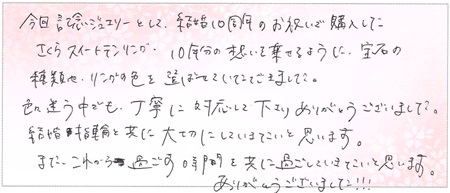 今回記念ジュエリーとして、結婚10周年のお祝いで購入した
さくらスイートテンリング。10年分の想いを乗せるように、宝石の
種類や、リングの色を選ばせていただきました。
色々迷う中でも、丁寧に対応して下さりありがとうございました。
結婚指輪と共に大切にしていきたいと思います。
また、これから過ごす時間を共に過ごしていきたいと思います。
ありがとうございました!!!